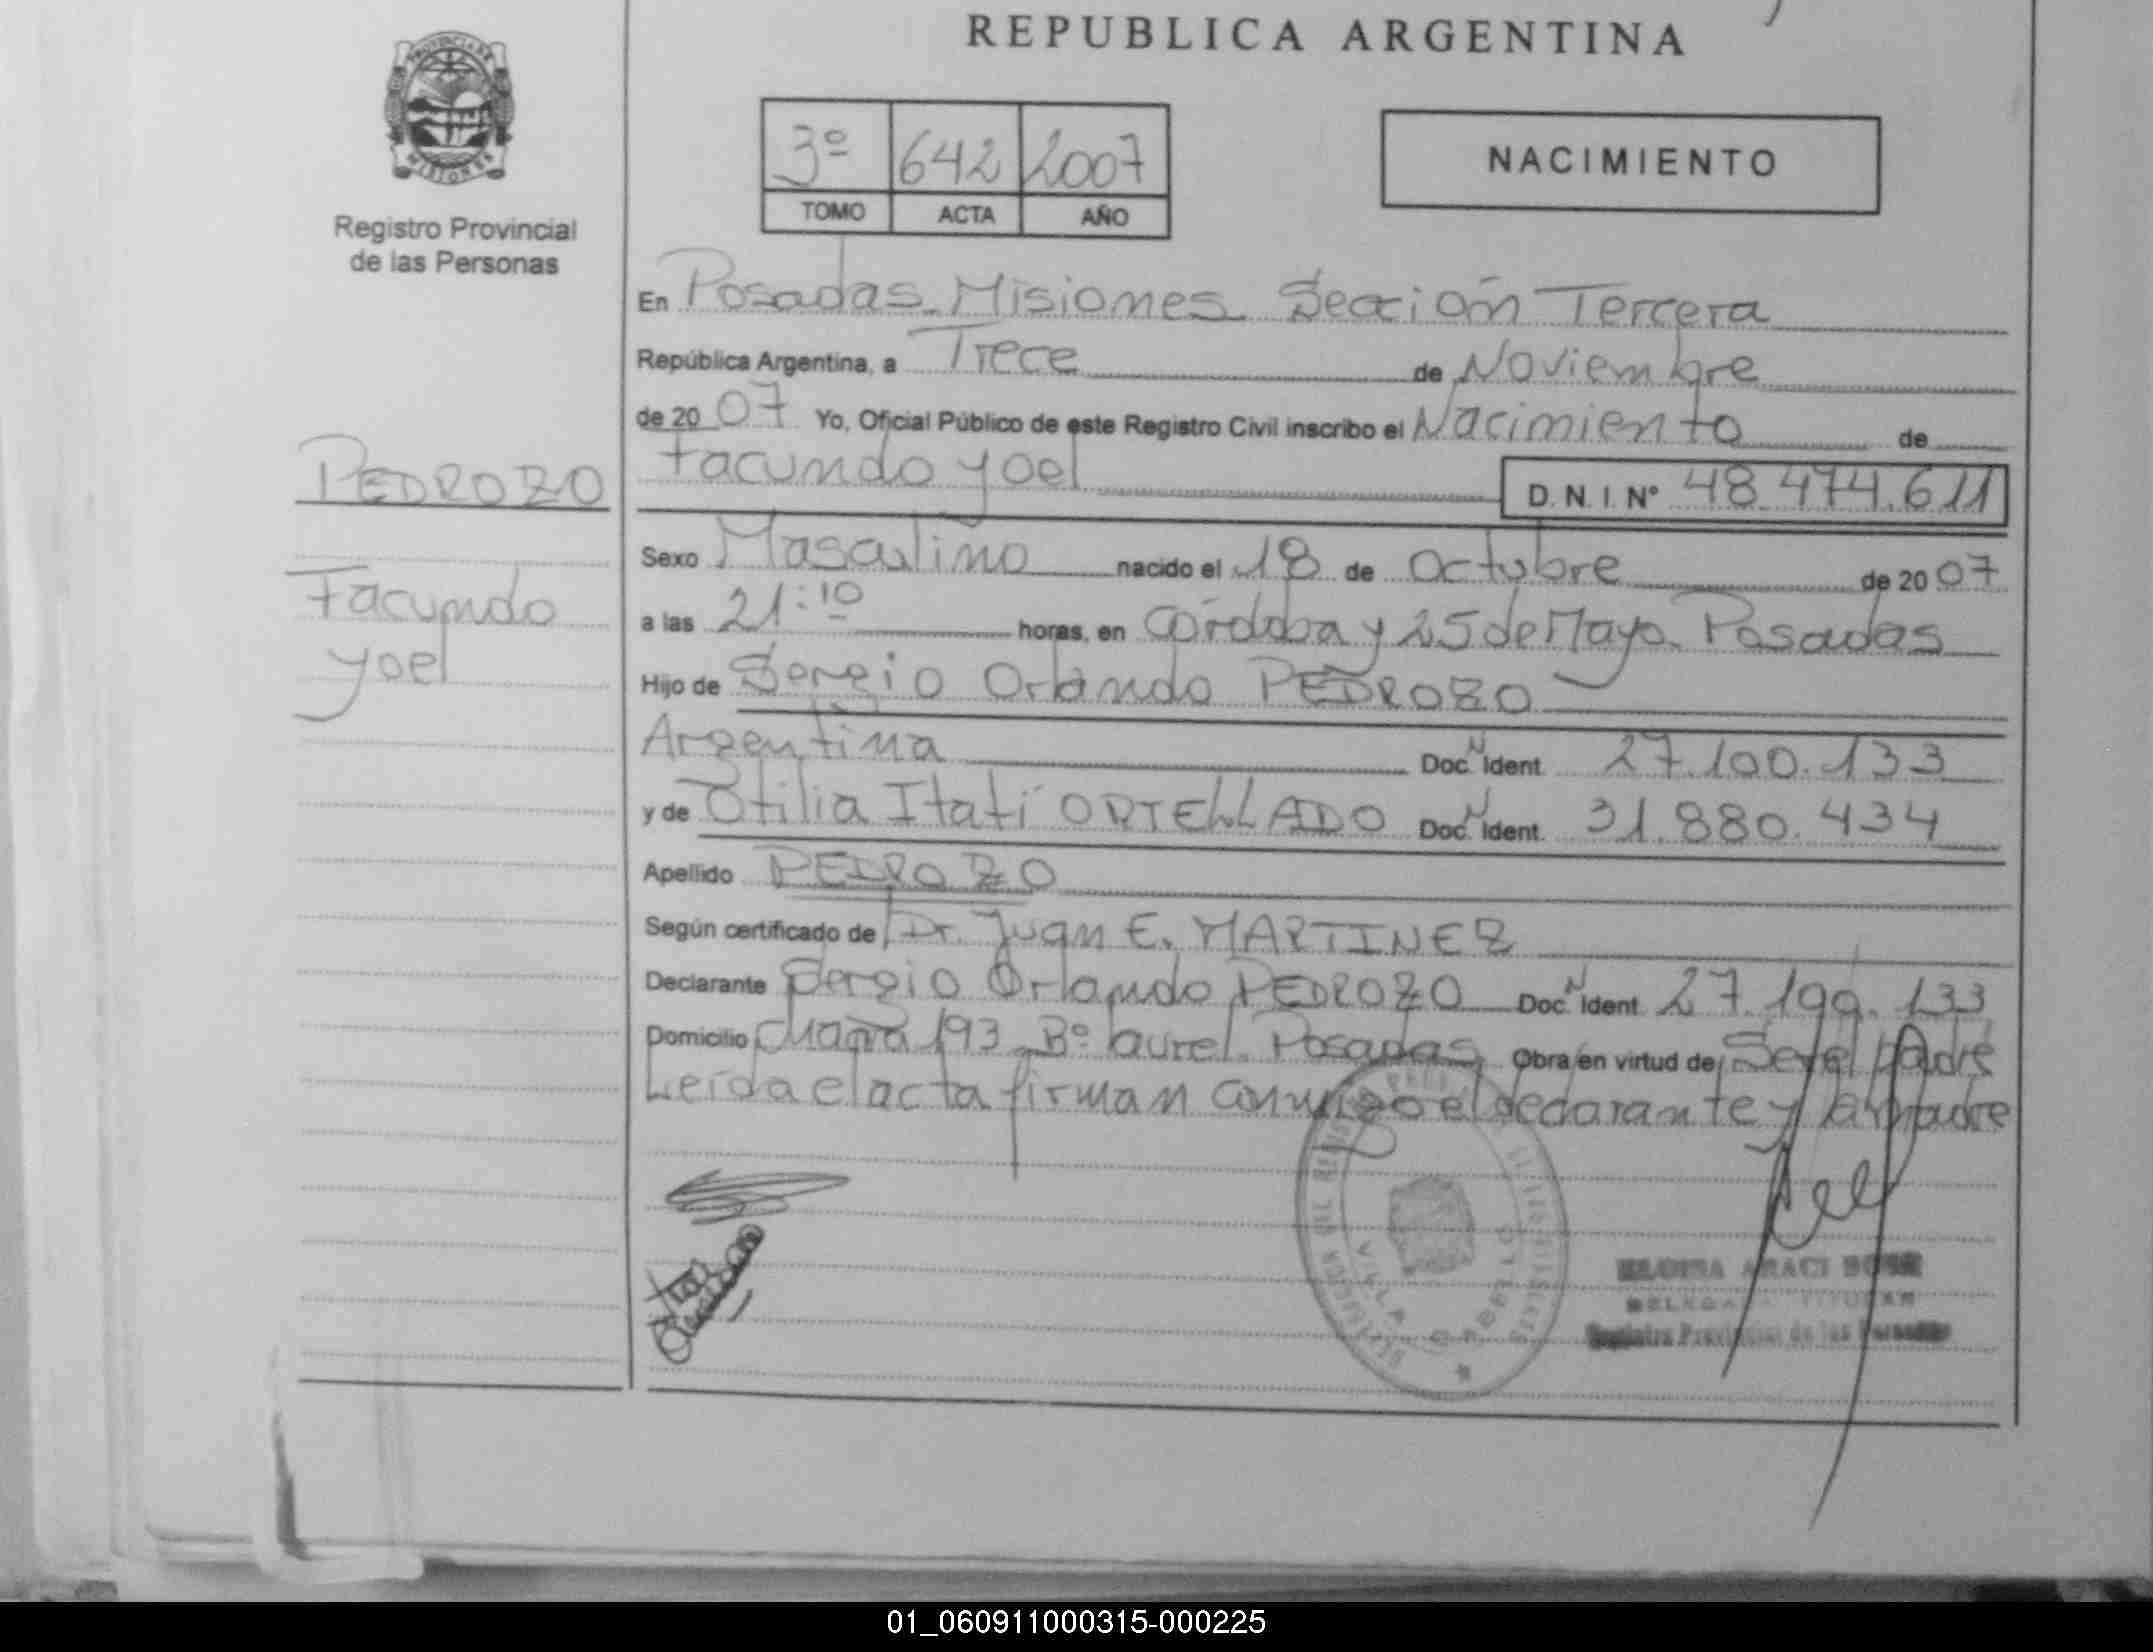 REPUBLICA ARGENTINA
PROVINCIA DE
MISIONES
Registro Provincial
de las Personas
3º 642 2007
TOMO ACTA AÑO
NACIMIENTO
En Posadas-Misiones Sección Tercera
República Argentina, a Trece de Noviembre
de 2007 Yo, Oficial Público de este Registro Civil inscribo el Nacimiento de
PEDROZO
Facundo yoel D. N. I. Nº 48.474.611
Facundo
yoel
Sexo Masculino nacido el 18 de Octubre de 2007
a las 21:10 horas, en Córdoba y 25 de Mayo. Posadas
Hijo de Sergio Orlando PEDROZO
Argentina Doc. N Ident. 27.100.133
y de Otilia Itatí ORTELLADO Doc. N Ident. 31.880.434
Apellido PEDROZO
Según certificado de Dr. Juan E. MARTINEZ
Declarante Sergio Orlando PEDROZO Doc. N Ident. 27.199.133
Domicilio 193 Bº Laurel. Posadas Obra en virtud de Ser el padre
Leída el acta firman conmigo el declarante y la madre
VILLA CABELLO
ARACI
DELEGADA TITULAR
Registro Provincial de las Personas
01_060911000315-000225